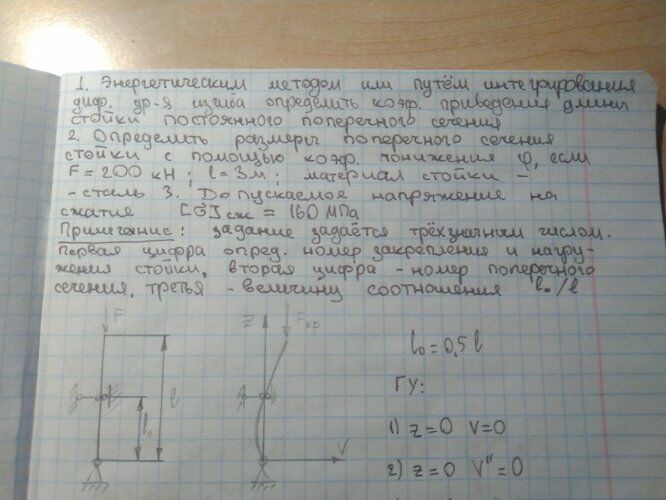 1. Энергетическим методом или путём интегрирования
диф. ур-я изгиба определить коэф. приведения длины
стойки постоянного поперечного сечения
2. Определить размеры поперечного сечения
стойки с помощью коэф. понижения φ, если
F = 200 кН; l = 3 м; материал стойки -
- сталь 3. Допускаемое напряжение на
сжатие [σ]сж = 160 МПа
Примечание: задание задаётся трёхзначным числом.
Первая цифра опред. номер закрепления и нагру-
жения стойки, вторая цифра - номер поперечного
сечения, третья - величину соотношения l₀/l
F
l
l₀
z
Fкр
V
l₀ = 0,5 l
ГУ:
1) z = 0 V = 0
2) z = 0 V" = 0